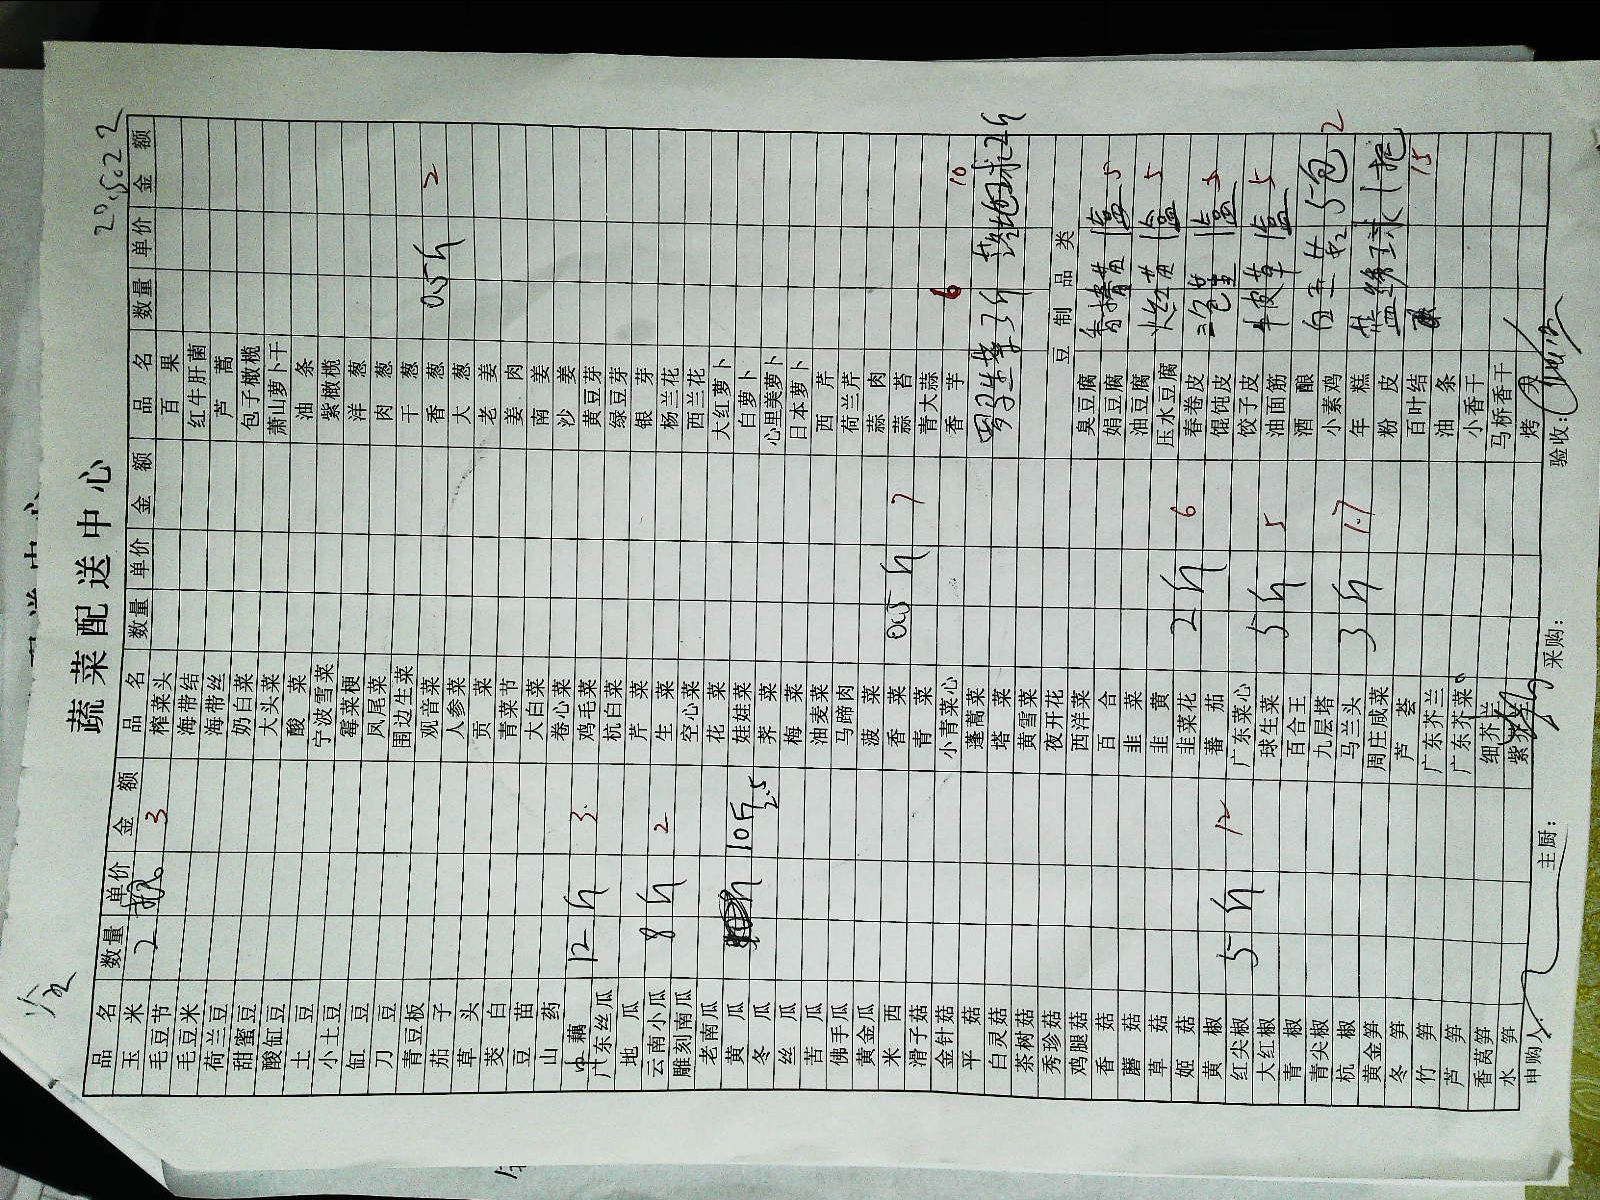 蔬菜配送中心
品名 数量 单价 金额
玉米 2 3
毛豆节
毛豆米
荷兰豆
甜蜜豆
酸缸豆
土豆
小土豆
缸豆
刀豆
青豆板
茄子
草头
茭白
豆苗
山药
中藕 12斤 3
广东丝瓜
地瓜
云南小瓜 8斤 2
雕刻南瓜
老南瓜
黄瓜 10斤 2.5
冬瓜
丝瓜
苦瓜
佛手瓜
黄金瓜
米西
滑子菇
金针菇
平菇
白灵菇
茶树菇
秀珍菇
鸡腿菇
香菇
蘑菇
草菇
姬菇
黄椒
红尖椒 5斤 12
大红椒
青椒
青尖椒
杭椒
黄金笋
冬笋
竹笋
芦笋
香莴笋
水笋
品名 数量 单价 金额
榨菜头
海带结
海带丝
奶白菜
大头菜
酸菜
宁波雪菜
霉菜梗
凤尾菜
围边生菜
观音菜
人参菜
贡菜
青菜节
大白菜
卷心菜
鸡毛菜
杭白菜
芹菜
生菜
空心菜
花菜
娃娃菜
荠菜
梅菜
油麦菜
马蹄肉
菠菜
香菜 0.5斤 7
青菜
小青菜心
蓬蒿菜
塔菜
黄雪菜
夜开花
西洋菜
百合
韭菜
韭黄
韭菜花 2斤 6
蕃茄
广东菜心
球生菜 5斤 5
百合王
九层塔
马兰头 3斤 1.7
周庄咸菜
芦荟
广东芥兰
广东芥菜
细芥兰
品名 数量 单价 金额
百果
红牛肝菌
芦蒿
包子橄榄
萧山萝卜干
油条
紫橄榄
洋葱
肉葱
干葱
香葱 0.5斤 2
大葱
老姜
姜肉
南姜
沙姜
黄豆芽
绿豆芽
银芽
杨兰花
西兰花
大红萝卜
白萝卜
心里美萝卜
日本萝卜
西芹
荷兰芹
蒜肉
蒜苔
青大蒜
香芋 6 10
豆制品类
臭豆腐
娟豆腐 5
油豆腐 5
压水豆腐
春卷皮
馄饨皮 三色堇 1盆
饺子皮
油面筋 5
酒酿
小素鸡 5包 2
年糕
粉皮 1把
百叶结 15
油条
小香干
马桥香干
烤夫
申购人: 主厨: 采购: 验收: